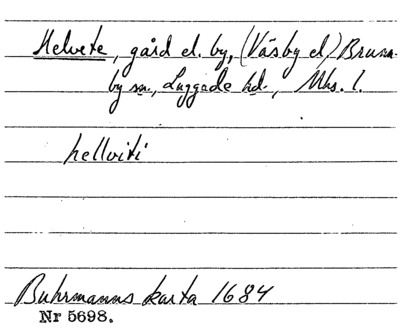 Helvete, gård el. by, (Väsby el) Brunn-
by sn., Luggude hd., Mhs. l.
hellviti
Buhrmanns karta 1684
Nr 5698.